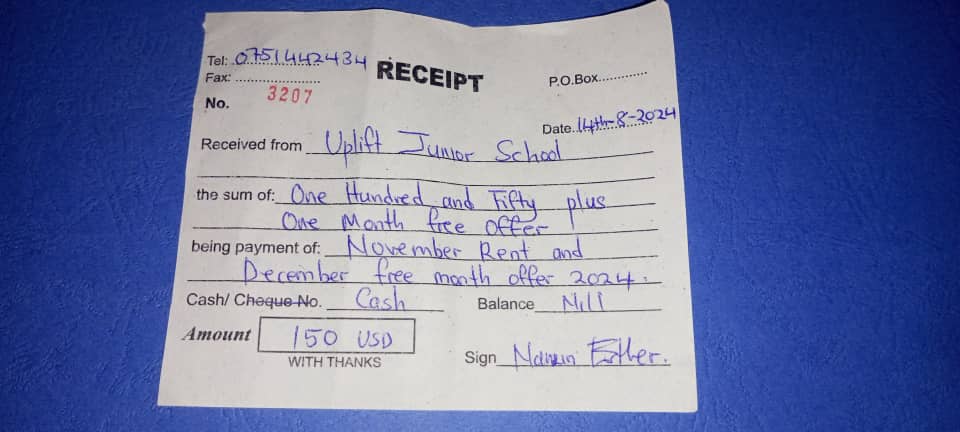 Tel: 0751442434
RECEIPT
P.O.Box.............
Fax: ......................
No. 3207
Date. 14th-8-2024
Received from Uplift Junior School
the sum of: One Hundred and Fifty plus
One Month free offer
being payment of: November Rent and
December free month offer 2024.
Cash/ Cheque No. Cash Balance Nill
Amount 150 USD
WITH THANKS
Sign Esther.